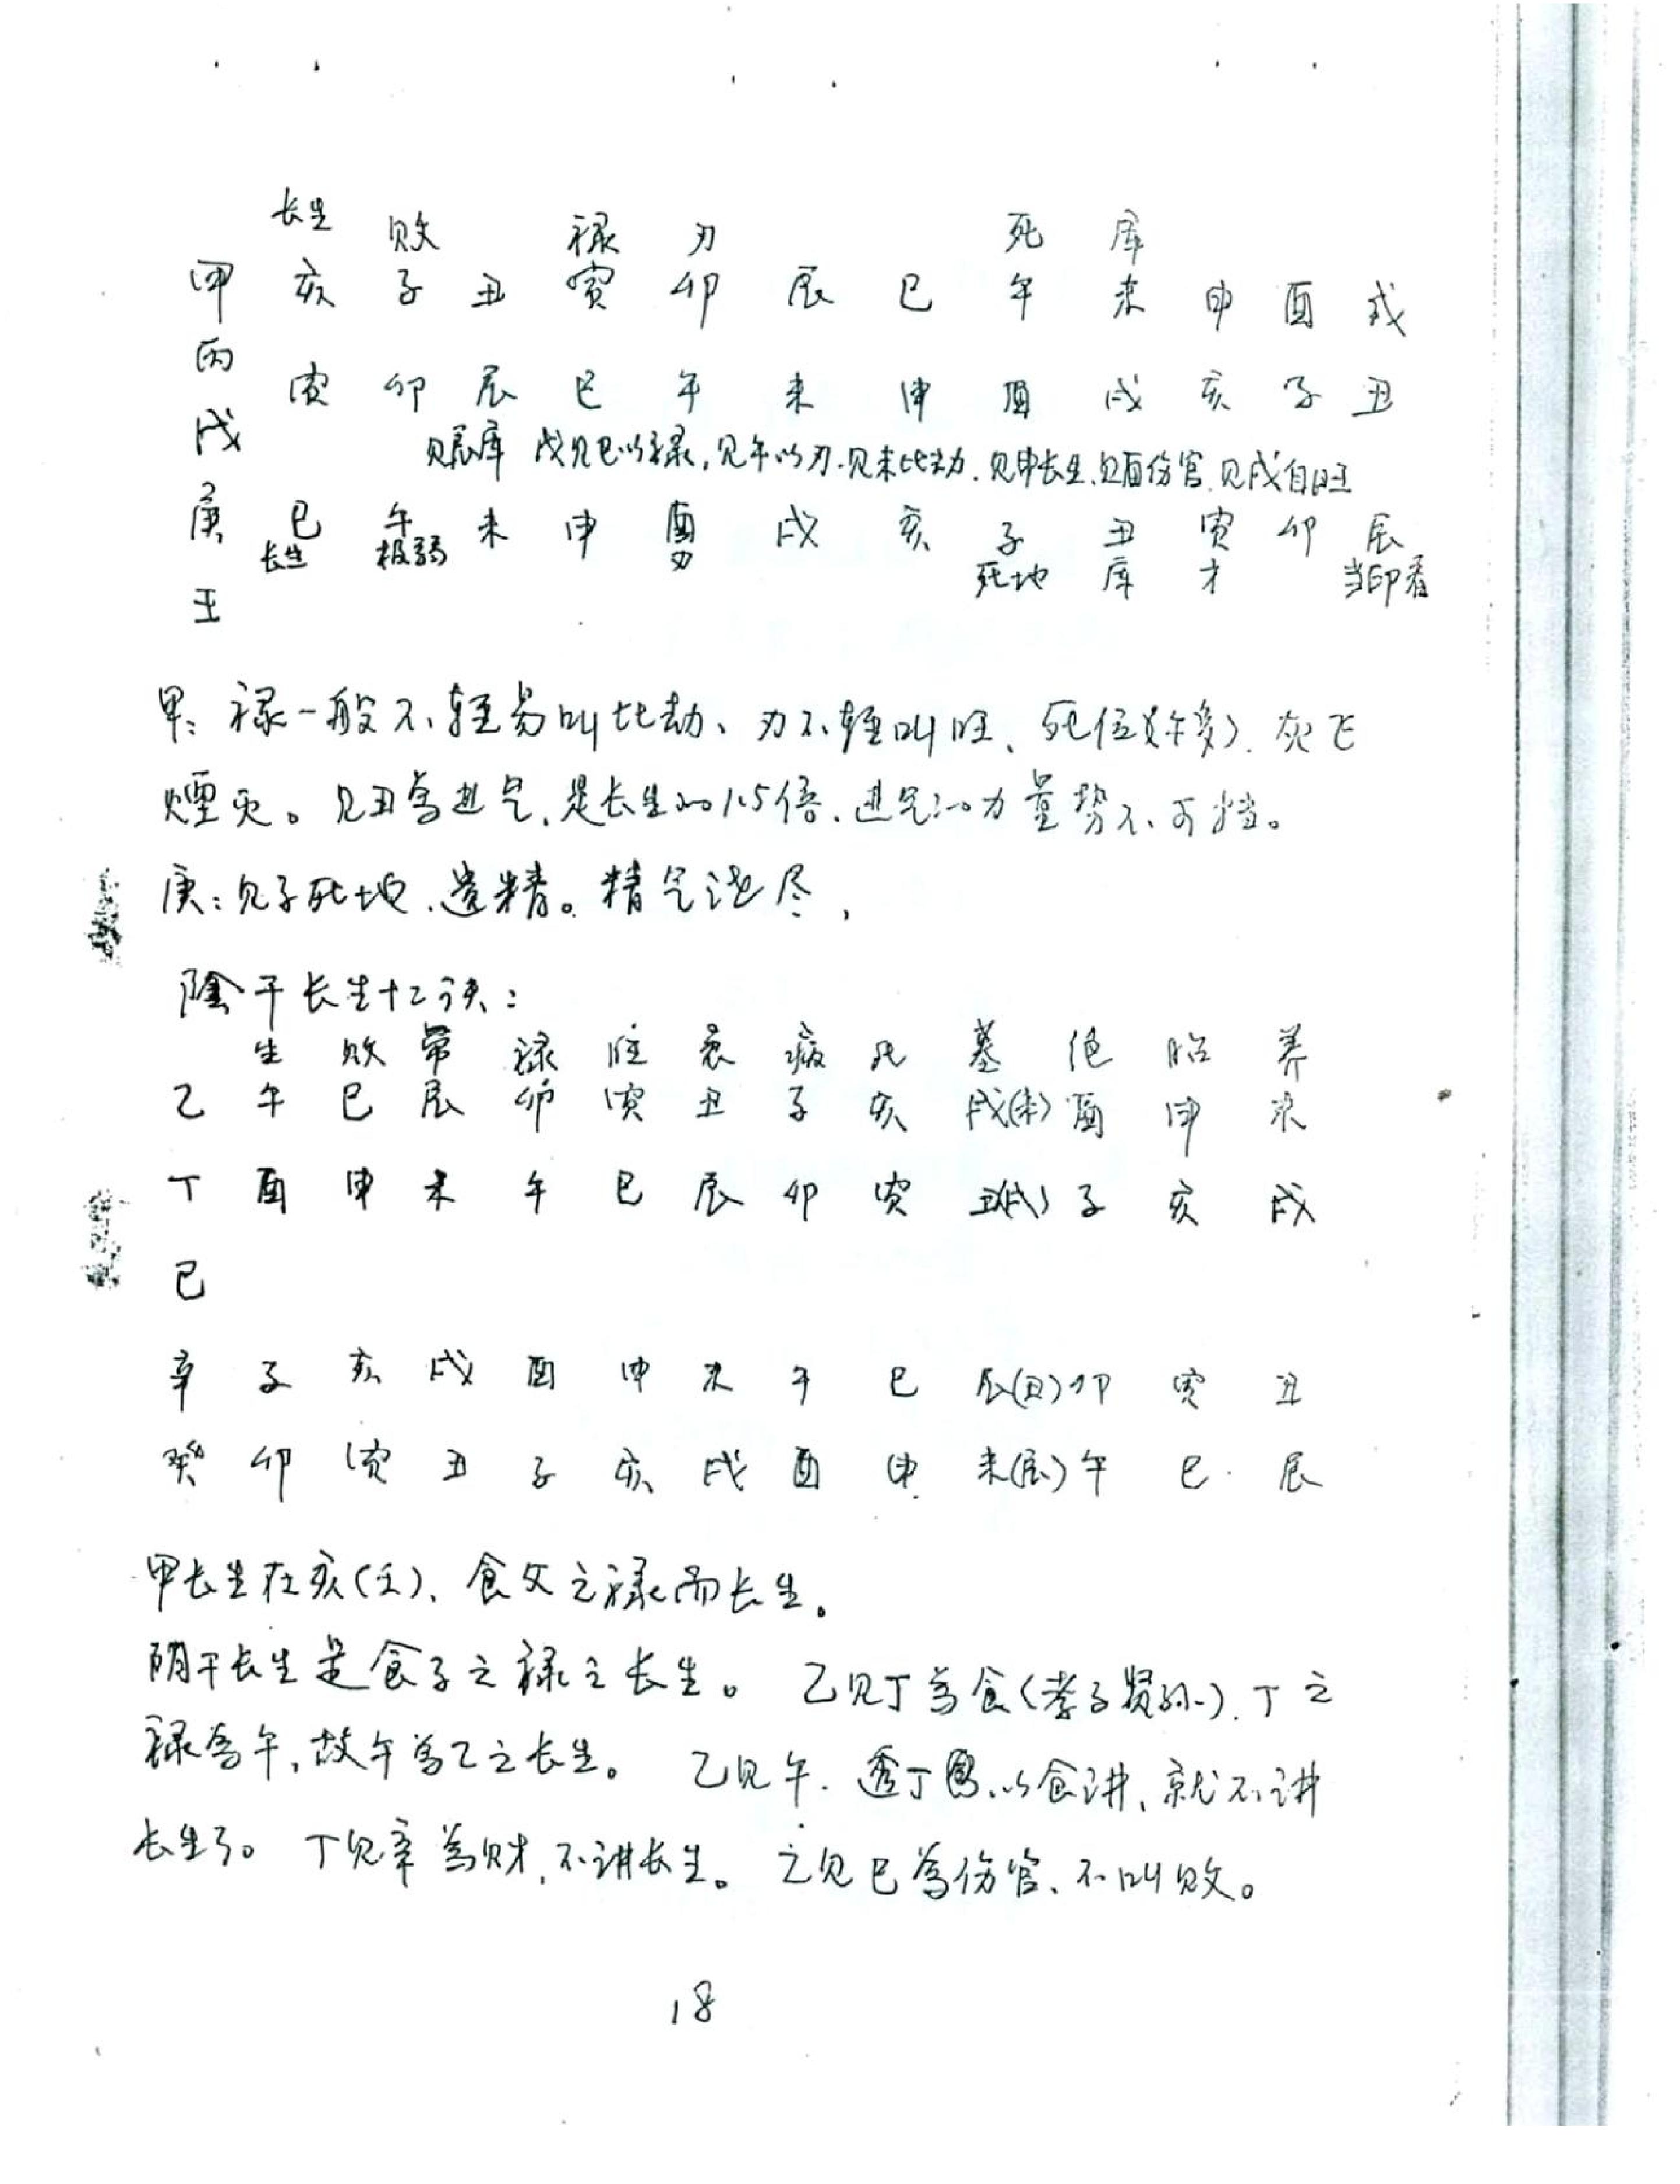 长生 败 禄 刃 死 库
甲 亥 子 丑 寅 卯 辰 巳 午 未 申 酉 戌
丙
寅 卯 辰 巳 午 未 申 酉 戌 亥 子 丑
戊 见辰库 戊见巳以禄,见午以刃.见未比劫.见申长生.见酉伤官.见戌自旺
庚 巳 午 未 申 酉 戌 亥 子 丑 寅 卯 辰
长生 极弱 刃 死地 库 才 当印看
壬
甲:禄一般不轻易叫比劫、刃不轻叫旺、死伍(许多).灰飞
煙灭。见丑為进气,是长生的1.5倍.进气的力量势不可挡。
庚:见子死地.遗精。精气泄尽,
陰干长生十二诀:
生 败 带 禄 旺 衰 病 死 墓 绝 胎 养
乙 午 巳 辰 卯 寅 丑 子 亥 戌(未) 酉 申 未
丁 酉 申 未 午 巳 辰 卯 寅 丑(戌) 子 亥 戌
己
辛 子 亥 戌 酉 申 未 午 巳 辰(丑) 卯 寅 丑
癸 卯 寅 丑 子 亥 戌 酉 申 未(辰) 午 巳 辰
甲长生在亥(壬)、食父之禄而长生。
阴干长生是食子之禄之长生。 乙见丁為食(孝子贤孙).丁之
禄為午,故午為乙之长生。 乙见午.透丁,以食讲、就不讲
长生了。丁见辛為财,不讲长生。乙见巳為伤官、不叫败。
18